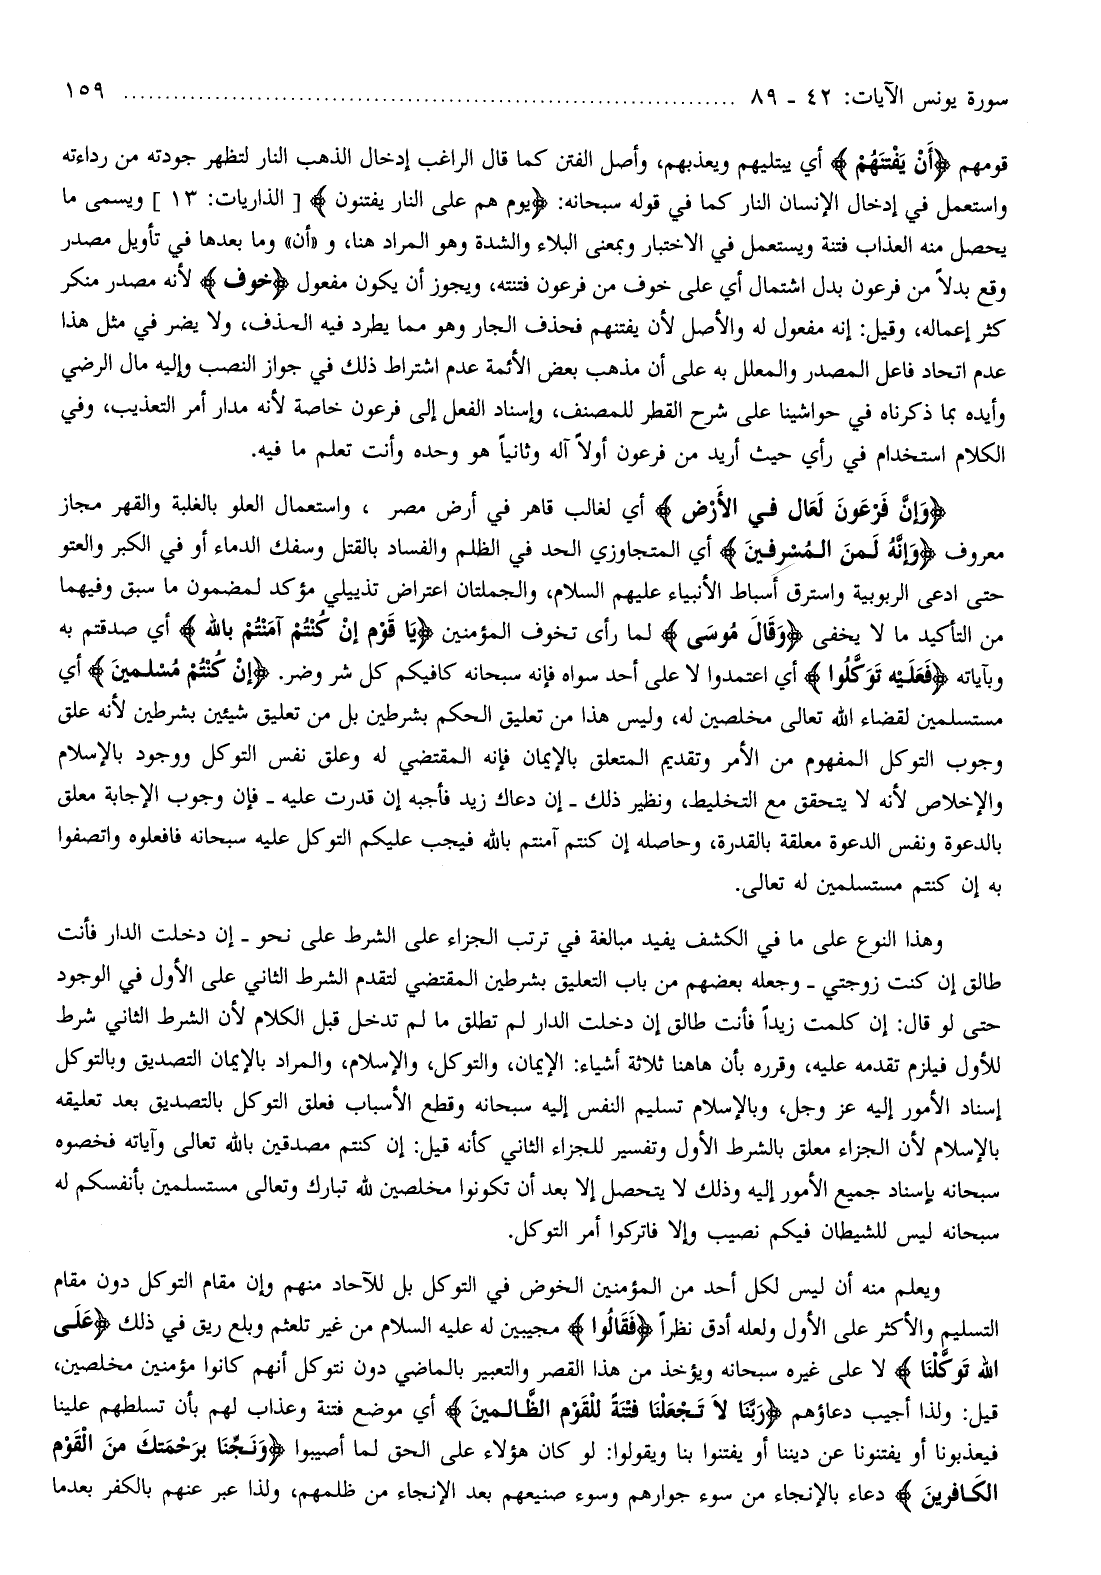 سورة يونس الآيات: ٤٢ ـ ٨٩ ........................................................................................... ١٥٩
قومهم ﴿أَنْ يَفْتِنَهُمْ﴾ أي يبتليهم ويعذبهم، وأصل الفتن كما قال الراغب إدخال الذهب النار لتظهر جودته من رداءته
واستعمل في إدخال الإنسان النار كما في قوله سبحانه: ﴿يوم هم على النار يفتنون﴾ [ الذاريات: ١٣ ] ويسمى ما
يحصل منه العذاب فتنة ويستعمل في الاختبار وبمعنى البلاء والشدة وهو المراد هنا، و «أن» وما بعدها في تأويل مصدر
وقع بدلاً من فرعون بدل اشتمال أي على خوف من فرعون فتنته، ويجوز أن يكون مفعول ﴿خوف﴾ لأنه مصدر منكر
كثر إعماله، وقيل: إنه مفعول له والأصل لأن يفتنهم فحذف الجار وهو مما يطرد فيه الحذف، ولا يضر في مثل هذا
عدم اتحاد فاعل المصدر والمعلل به على أن مذهب بعض الأئمة عدم اشتراط ذلك في جواز النصب وإليه مال الرضي
وأيده بما ذكرناه في حواشينا على شرح القطر للمصنف، وإسناد الفعل إلى فرعون خاصة لأنه مدار أمر التعذيب، وفي
الكلام استخدام في رأي حيث أريد من فرعون أولاً آله وثانياً هو وحده وأنت تعلم ما فيه.
﴿وَإِنَّ فِرْعَوْنَ لَعَالٍ فِي الأَرْضِ﴾ أي لغالب قاهر في أرض مصر ، واستعمال العلو بالغلبة والقهر مجاز
معروف ﴿وَإِنَّهُ لَمِنَ الْمُسْرِفِينَ﴾ أي المتجاوزي الحد في الظلم والفساد بالقتل وسفك الدماء أو في الكبر والعتو
حتى ادعى الربوبية واسترق أسباط الأنبياء عليهم السلام، والجملتان اعتراض تذييلي مؤكد لمضمون ما سبق وفيهما
من التأكيد ما لا يخفى ﴿وَقَالَ مُوسَى﴾ لما رأى تخوف المؤمنين ﴿يَا قَوْمِ إِنْ كُنْتُمْ آمَنْتُمْ بِاللهِ﴾ أي صدقتم به
وبآياته ﴿فَعَلَيْهِ تَوَكَّلُوا﴾ أي اعتمدوا لا على أحد سواه فإنه سبحانه كافيكم كل شر وضر. ﴿إِنْ كُنْتُمْ مُسْلِمِينَ﴾ أي
مستسلمين لقضاء الله تعالى مخلصين له، وليس هذا من تعليق الحكم بشرطين بل من تعليق شيئين بشرطين لأنه علق
وجوب التوكل المفهوم من الأمر وتقديم المتعلق بالإيمان فإنه المقتضي له وعلق نفس التوكل ووجود بالإسلام
والإخلاص لأنه لا يتحقق مع التخليط، ونظير ذلك ـ إن دعاك زيد فأجبه إن قدرت عليه ـ فإن وجوب الإجابة معلق
بالدعوة ونفس الدعوة معلقة بالقدرة، وحاصله إن كنتم آمنتم بالله فيجب عليكم التوكل عليه سبحانه فافعلوه واتصفوا
به إن كنتم مستسلمين له تعالى.
وهذا النوع على ما في الكشف يفيد مبالغة في ترتب الجزاء على الشرط على نحو ـ إن دخلت الدار فأنت
طالق إن كنت زوجتي ـ وجعله بعضهم من باب التعليق بشرطين المقتضي لتقدم الشرط الثاني على الأول في الوجود
حتى لو قال: إن كلمت زيداً فأنت طالق إن دخلت الدار لم تطلق ما لم تدخل قبل الكلام لأن الشرط الثاني شرط
للأول فيلزم تقدمه عليه، وقرره بأن هاهنا ثلاثة أشياء: الإيمان، والتوكل، والإسلام، والمراد بالإيمان التصديق وبالتوكل
إسناد الأمور إليه عز وجل، وبالإسلام تسليم النفس إليه سبحانه وقطع الأسباب فعلق التوكل بالتصديق بعد تعليقه
بالإسلام لأن الجزاء معلق بالشرط الأول وتفسير للجزاء الثاني كأنه قيل: إن كنتم مصدقين بالله تعالى وآياته فخصوه
سبحانه بإسناد جميع الأمور إليه وذلك لا يتحصل إلا بعد أن تكونوا مخلصين لله تبارك وتعالى مستسلمين بأنفسكم له
سبحانه ليس للشيطان فيكم نصيب وإلا فاتركوا أمر التوكل.
ويعلم منه أن ليس لكل أحد من المؤمنين الخوض في التوكل بل للآحاد منهم وإن مقام التوكل دون مقام
التسليم والأكثر على الأول ولعله أدق نظراً ﴿فَقَالُوا﴾ مجيبين له عليه السلام من غير تلعثم وبلع ريق في ذلك ﴿عَلَى
اللهِ تَوَكَّلْنَا﴾ لا على غيره سبحانه ويؤخذ من هذا القصر والتعبير بالماضي دون نتوكل أنهم كانوا مؤمنين مخلصين،
قيل: ولذا أجيب دعاؤهم ﴿رَبَّنَا لاَ تَجْعَلْنَا فِتْنَةً لِلْقَوْمِ الظَّالِمِينَ﴾ أي موضع فتنة وعذاب لهم بأن تسلطهم علينا
فيعذبونا أو يفتنونا عن ديننا أو يفتنوا بنا ويقولوا: لو كان هؤلاء على الحق لما أصيبوا ﴿وَنَجِّنَا بِرَحْمَتِكَ مِنَ الْقَوْمِ
الكَافِرِينَ﴾ دعاء بالإنجاء من سوء جوارهم وسوء صنيعهم بعد الإنجاء من ظلمهم، ولذا عبر عنهم بالكفر بعدما